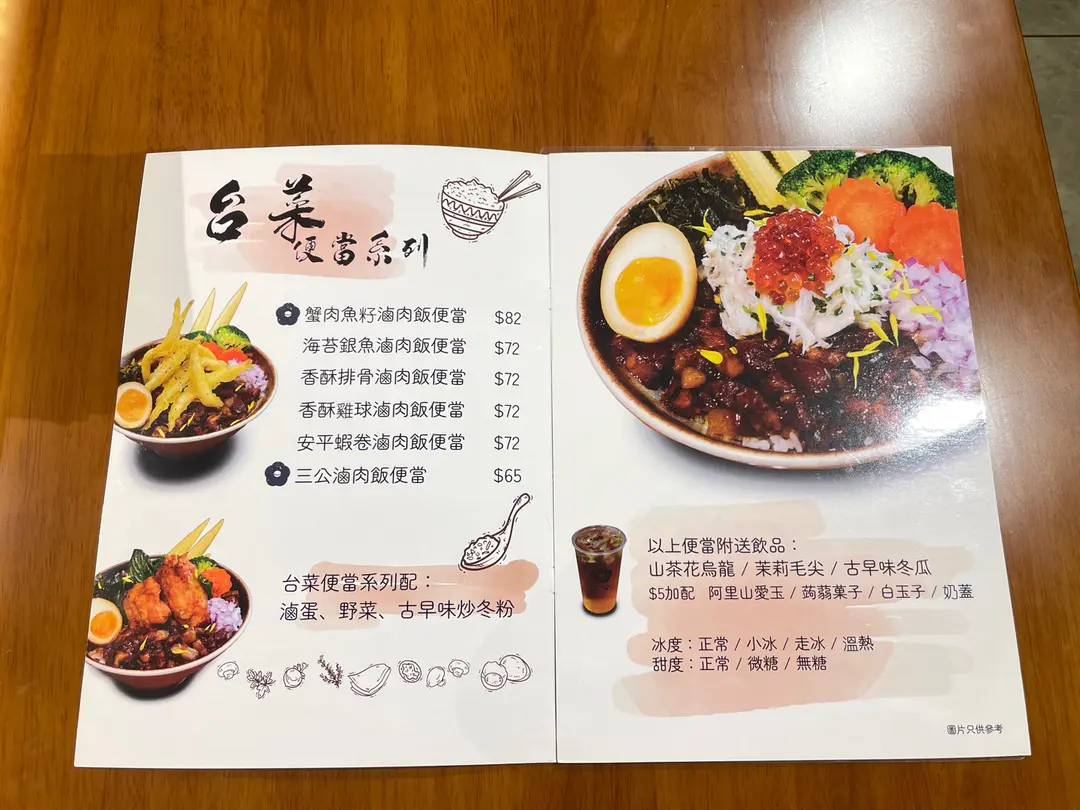 台菜
便當系列
蟹肉魚籽滷肉飯便當 $82
海苔銀魚滷肉飯便當 $72
香酥排骨滷肉飯便當 $72
香酥雞球滷肉飯便當 $72
安平蝦卷滷肉飯便當 $72
三公滷肉飯便當 $65
台菜便當系列配：
滷蛋、野菜、古早味炒冬粉
以上便當附送飲品：
山茶花烏龍 / 茉莉毛尖 / 古早味冬瓜
$5加配 阿里山愛玉 / 蒟蒻菓子 / 白玉子 / 奶蓋
冰度：正常 / 小冰 / 走冰 / 溫熱
甜度：正常 / 微糖 / 無糖
圖片只供參考